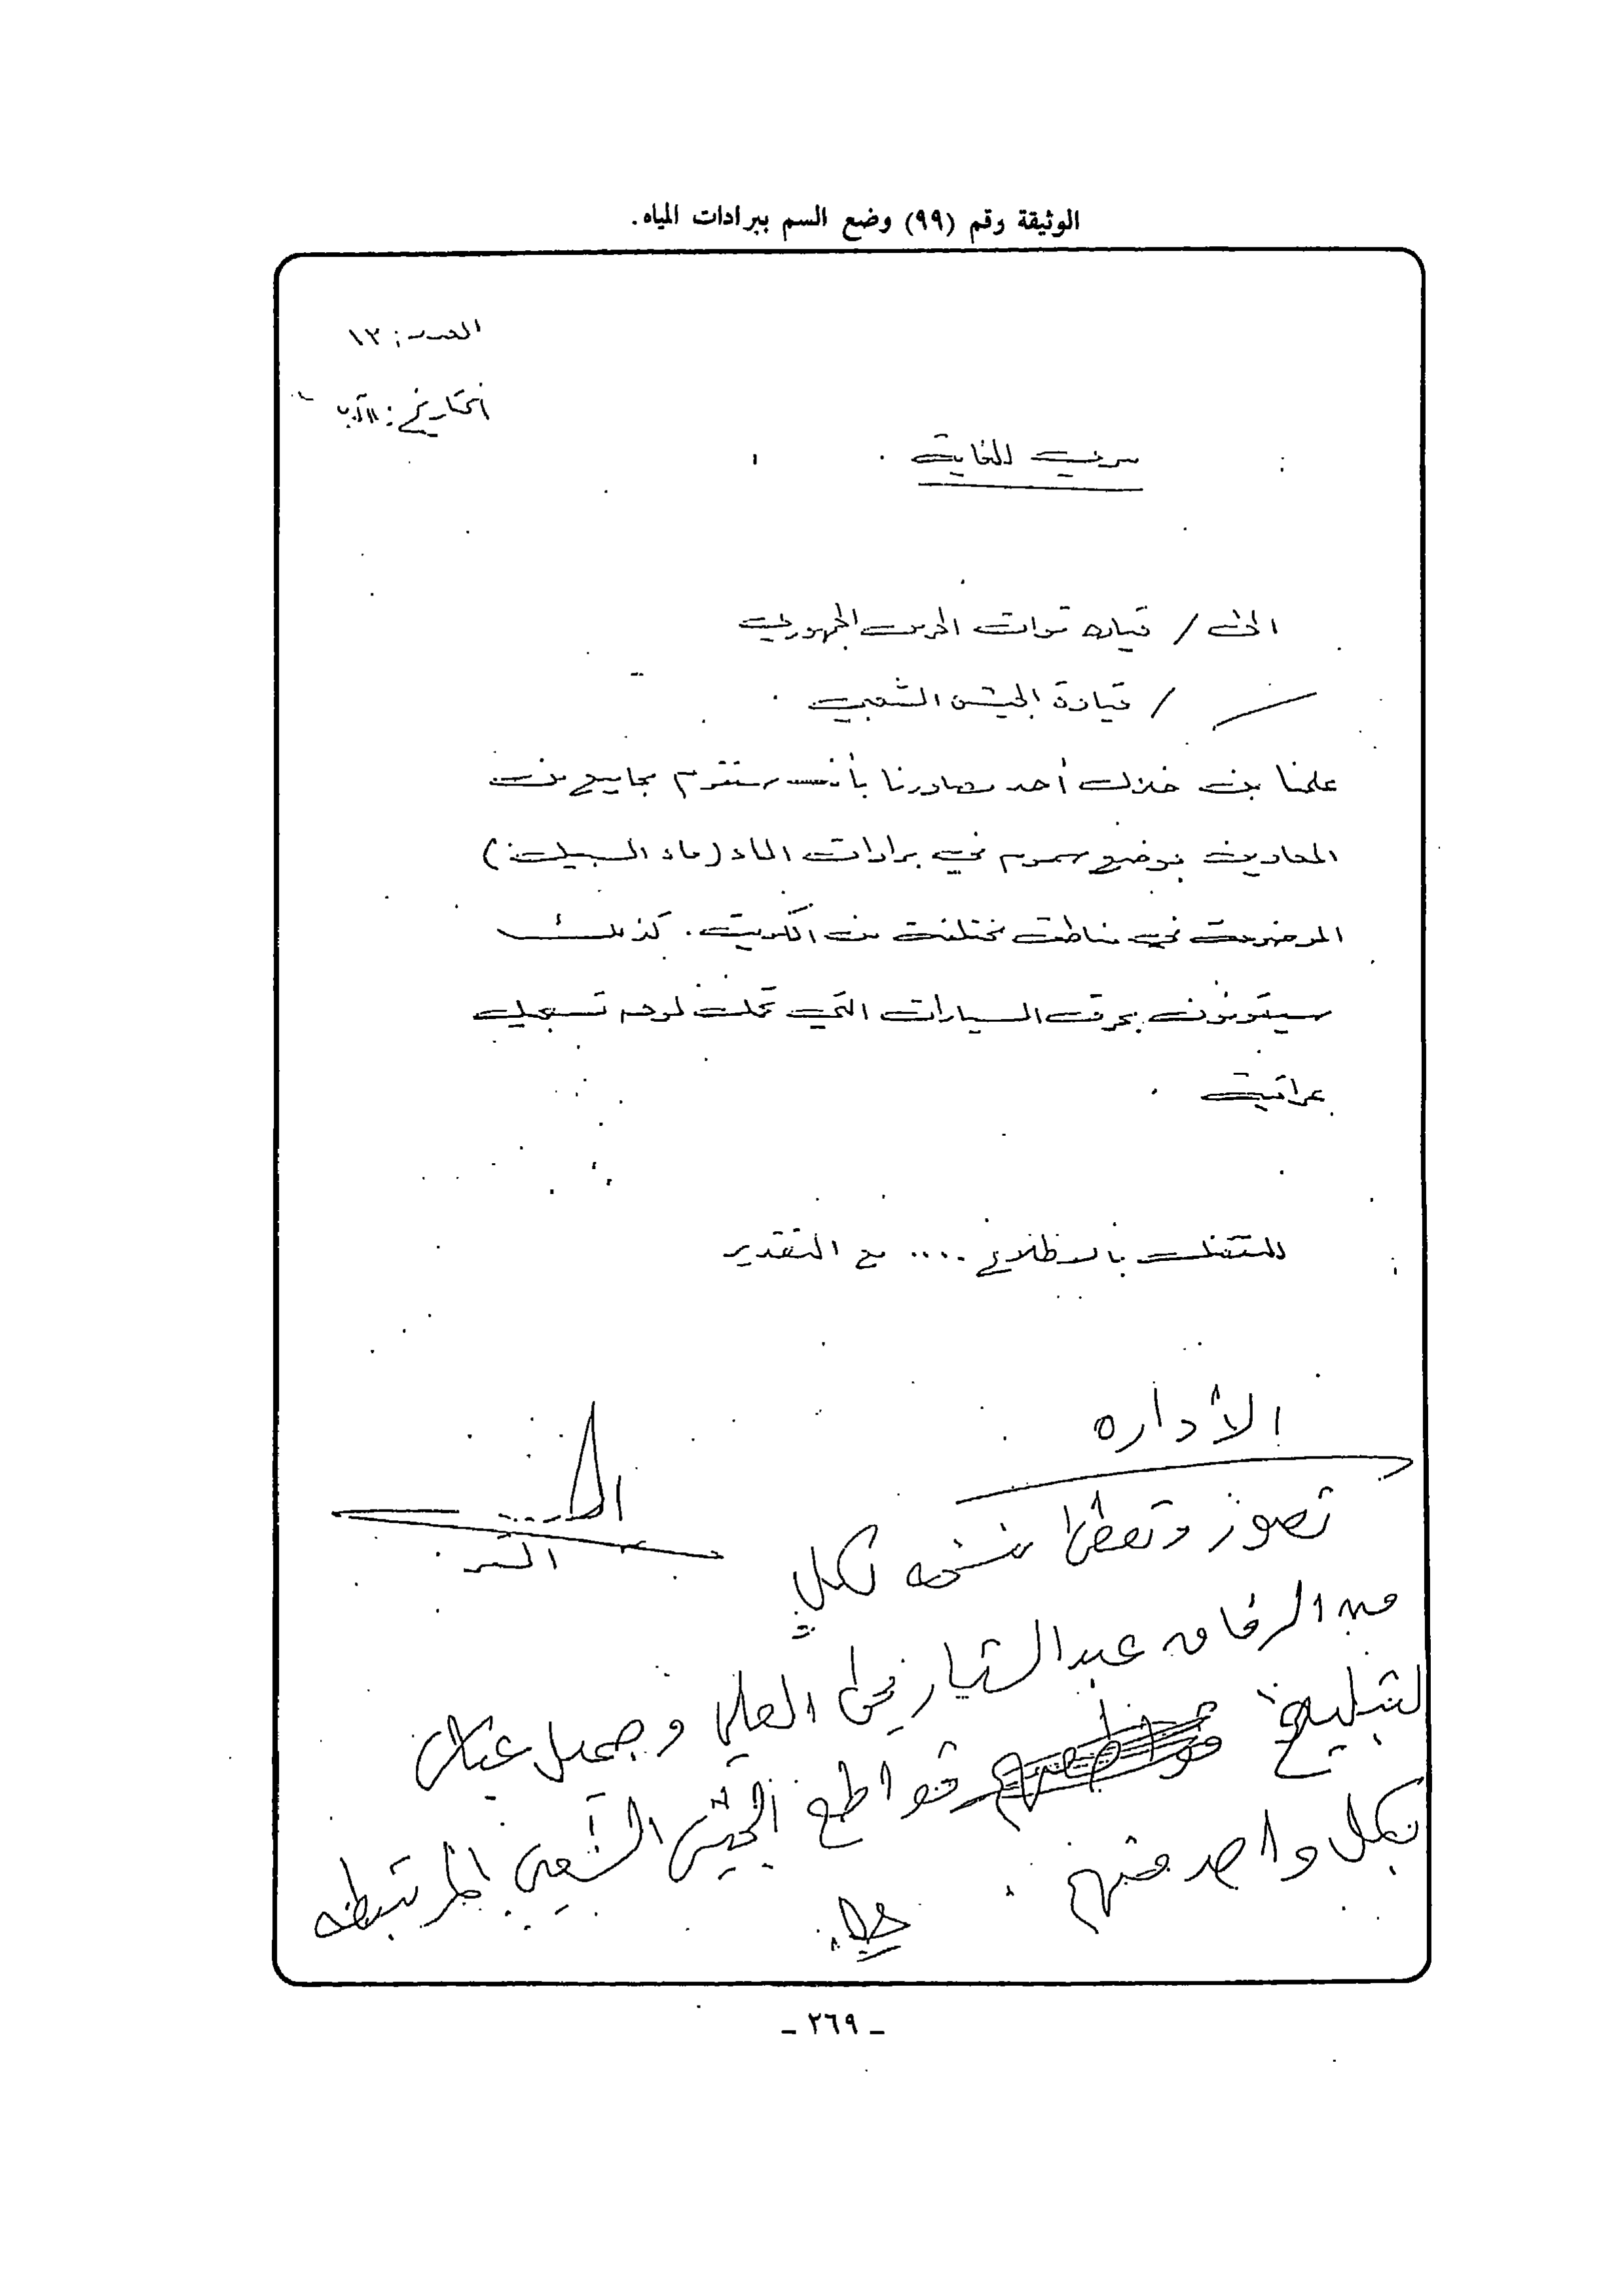 الوثيقة رقم (٩٩) وضع السم ببرادات المياه.
العدد: ١٣
التاريخ: آب
سري للغاية
الى / قياده قوات الحرس الجمهوري
/ قيادة الجيش الشعبي
علمنا من خلال أحد مصادرنا بأنه ستقوم مجاميع من
المعادين بوضع سموم في برادات الماء (ماء السبيل)
الموضوعة في مناطق مختلفة من الكويت. كذلك
سيقومون بحرق السيارات التي تحمل لوحم تسجيل
عراقية .
للتفضل بالاطلاع .... مع التقدير
الأداره
تصور وتعطى نسخه لكل
من الرفاق عبدالستار يحيى العلي وجميل
لتبليغ قواطع الجيش الشعبي المرتبطه
بكل واحد منهم .
- ٢٦٩ -